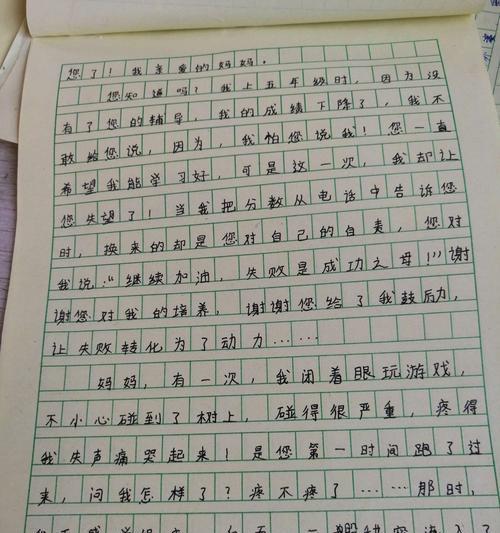 您了！我亲爱的妈妈。
您知道吗？我上五年级时，因为没
有了您的辅导，我的成绩下降了，我不
敢给您说，因为，我怕您说我！您一直
希望我能学习好，可是这一次，我却让
您失望了！当我把分数从电话中告诉您
时，换来的却是您对自己的自责，您对
我说：“继续加油，失败是成功之母！”谢
谢您对我的培养，谢谢您给了我鼓后力，
让失败转化为了动力……
妈妈，有一次，我闭着眼玩游戏，
不小心碰到了树上，碰得很严重，疼得
我失声痛哭起来！是您第一时间跑了过
来，问我怎样了？疼不疼了……那时，